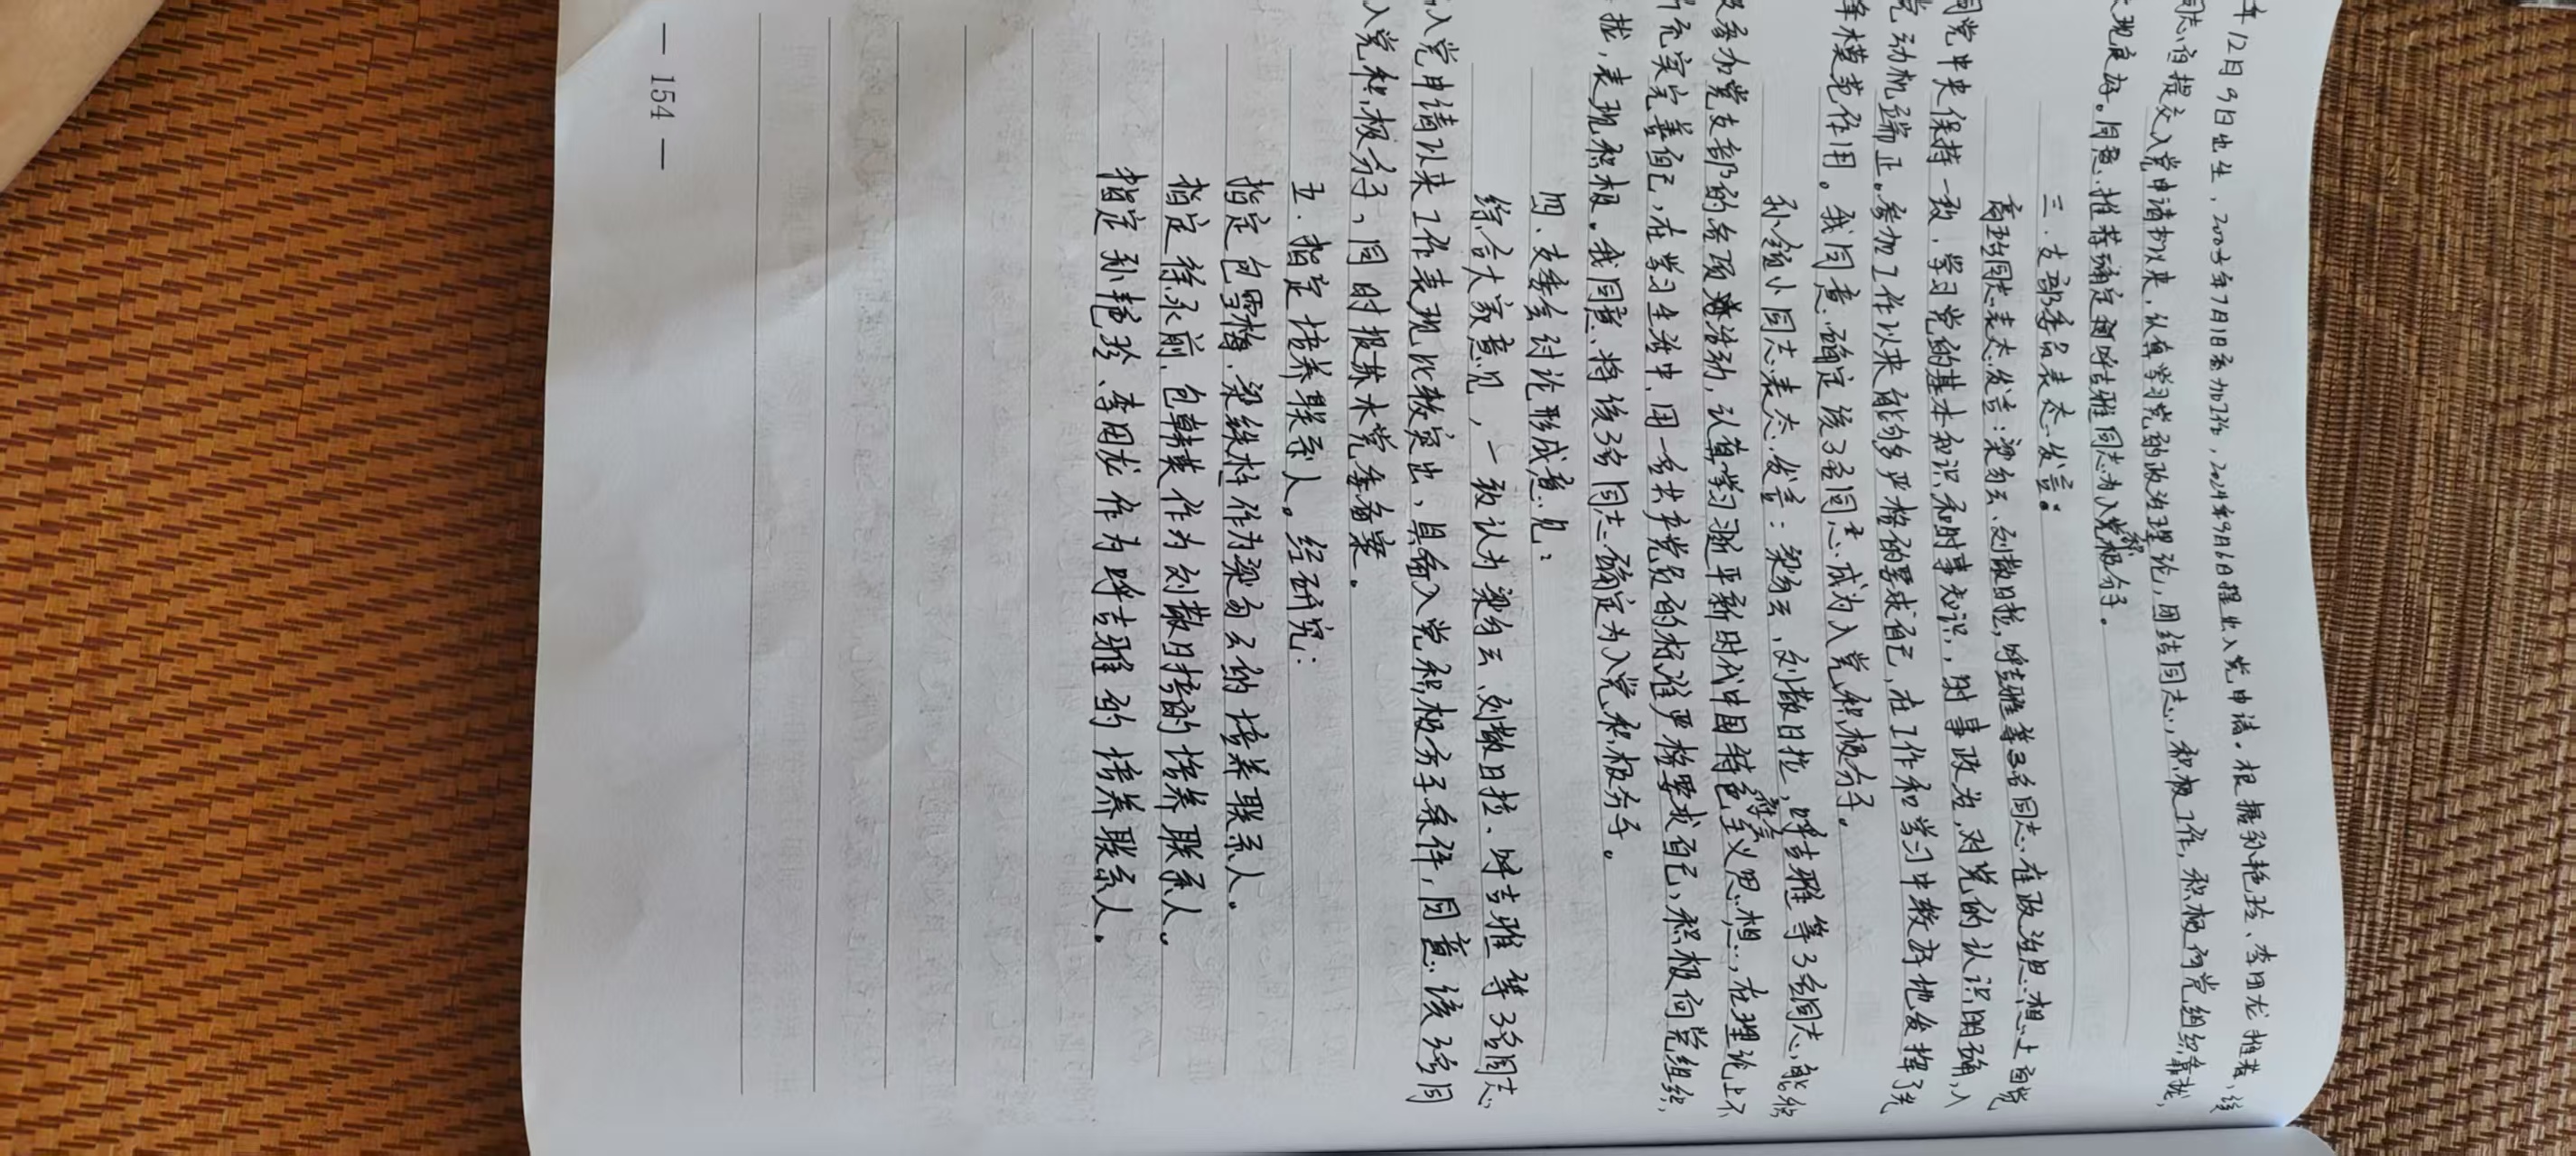 年12月9日出生，2003年7月1日参加工作，2024年9月6日提出入党申请。根据孙艳玲、李国龙推荐，该
同志自提交入党申请书以来，认真学习党的政治理论，团结同志，积极工作，积极向党组织靠拢，
表现良好。同意推荐确定呼吉雅同志为入党积极分子。
三.支部委员表态发言。
同志表态发言：梁勿云、刘散日拉，呼吉雅等3名同志在政治思想上与党
同党中央保持一致，学习党的基本知识和时事知识，时事政治，对党的认识明确，入
党动机端正。参加工作以来能够严格的要求自己，在工作和学习中较好地发挥了先
锋模范作用。我同意确定该3名同志成为入党积极分子。
孙银小同志表态发言：梁勿云、刘散日拉，呼吉雅等3名同志，能够
参加党支部的各项活动，认真学习习近平新时代中国特色社会主义思想，在理论上不
充实完善自己，在学习生活中用一名共产党员的标准严格要求自己，积极向党组织
拢，表现积极。我同意将该3名同志确定为入党积极分子。
四.支委会讨论形成意见：
综合大家意见，一致认为梁勿云、刘散日拉、呼吉雅等3名同志
入党申请以来工作表现比较突出，具备入党积极分子条件，同意该3名同
入党积极分子，同时报苏木党委备案。
五.指定培养联系人。经研究：
指定包雪梅、梁铁柱作为梁勿云的培养联系人。
指定徐永前、包韩英作为刘散日拉的培养联系人。
指定孙艳玲、李国龙作为呼吉雅的培养联系人。
— 154 —